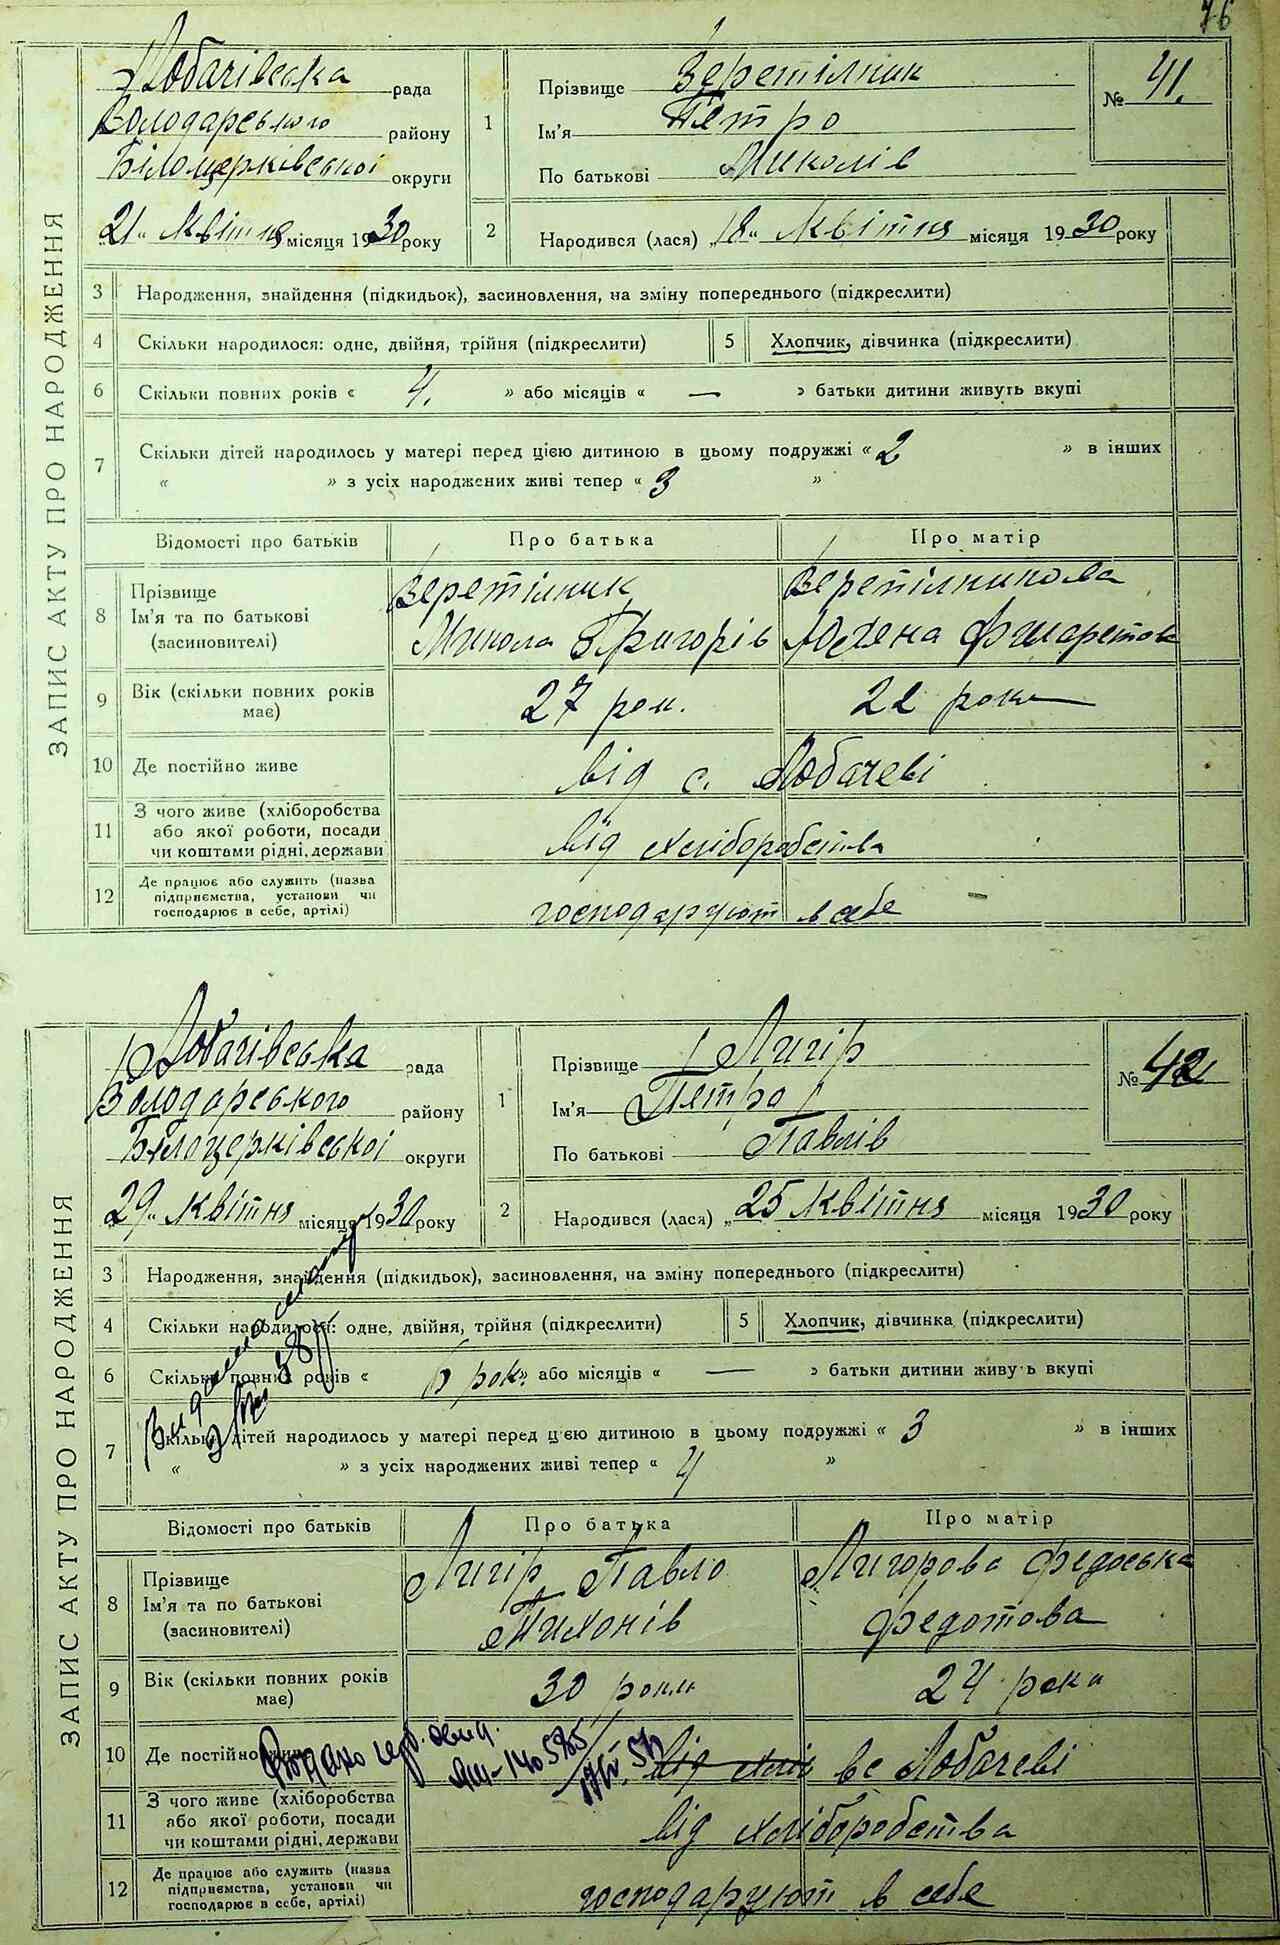 76
ЗАПИС АКТУ ПРО НАРОДЖЕННЯ
Лобачівська рада
Володарського району
Білоцерківської округи
„21“ Квітня місяця 1930 року
1 Прізвище Веретілник
Ім'я Петро
По батькові Миколів
№ 41.
2 Народився (лася) „18“ Квітня місяця 1930 року
3 Народження, знайдення (підкидьок), засиновлення, на зміну попереднього (підкреслити)
4 Скільки народилося: одне, двійня, трійня (підкреслити) 5 Хлопчик, дівчинка (підкреслити)
6 Скільки повних років « 4. » або місяців « — » батьки дитини живуть вкупі
7 Скільки дітей народилось у матері перед цією дитиною в цьому подружжі « 2 » в інших
« » з усіх народжених живі тепер « 3 »
Відомості про батьків Про батька Про матір
8 Прізвище Ім'я та по батькові (засиновителі)
Веретілник Микола Григорів
Веретілникова Филаретова
9 Вік (скільки повних років має) 27 рок. 22 роки
10 Де постійно живе від с. Лобачеві
11 З чого живе (хліборобства або якої роботи, посади чи коштами рідні, держави Від хліборобства
12 Де працює або служить (назва підприємства, установи чи господарює в себе, артілі) господарюют в себе
ЗАПИС АКТУ ПРО НАРОДЖЕННЯ
Лобачівська рада
Володарського району
Білоцерківської округи
29„ Квітня місяця 1930 року
1 Прізвище Лигір
Ім'я Петро
По батькові Павлів
№ 42
2 Народився (лася) „25 Квітня місяця 1930 року
3 Народження, знайдення (підкидьок), засиновлення, на зміну попереднього (підкреслити)
4 Скільки народилося: одне, двійня, трійня (підкреслити) 5 Хлопчик, дівчинка (підкреслити)
6 Скільки повних років « рок » або місяців « — » батьки дитини живуть вкупі
7 Скільки дітей народилось у матері перед цією дитиною в цьому подружжі « 3 » в інших
« » з усіх народжених живі тепер « 4 »
Відомості про батьків Про батька Про матір
8 Прізвище Ім'я та по батькові (засиновителі)
Лигір Павло Тихонів
Лигорова Федоська Федотова
9 Вік (скільки повних років має) 30 24 роки
10 Де постійно живе вс Лобачеві
11 З чого живе (хліборобства або якої роботи, посади чи коштами рідні, держави Від хліборобства
12 Де працює або служить (назва підприємства, установи чи господарює в себе, артілі) господарюют в себе